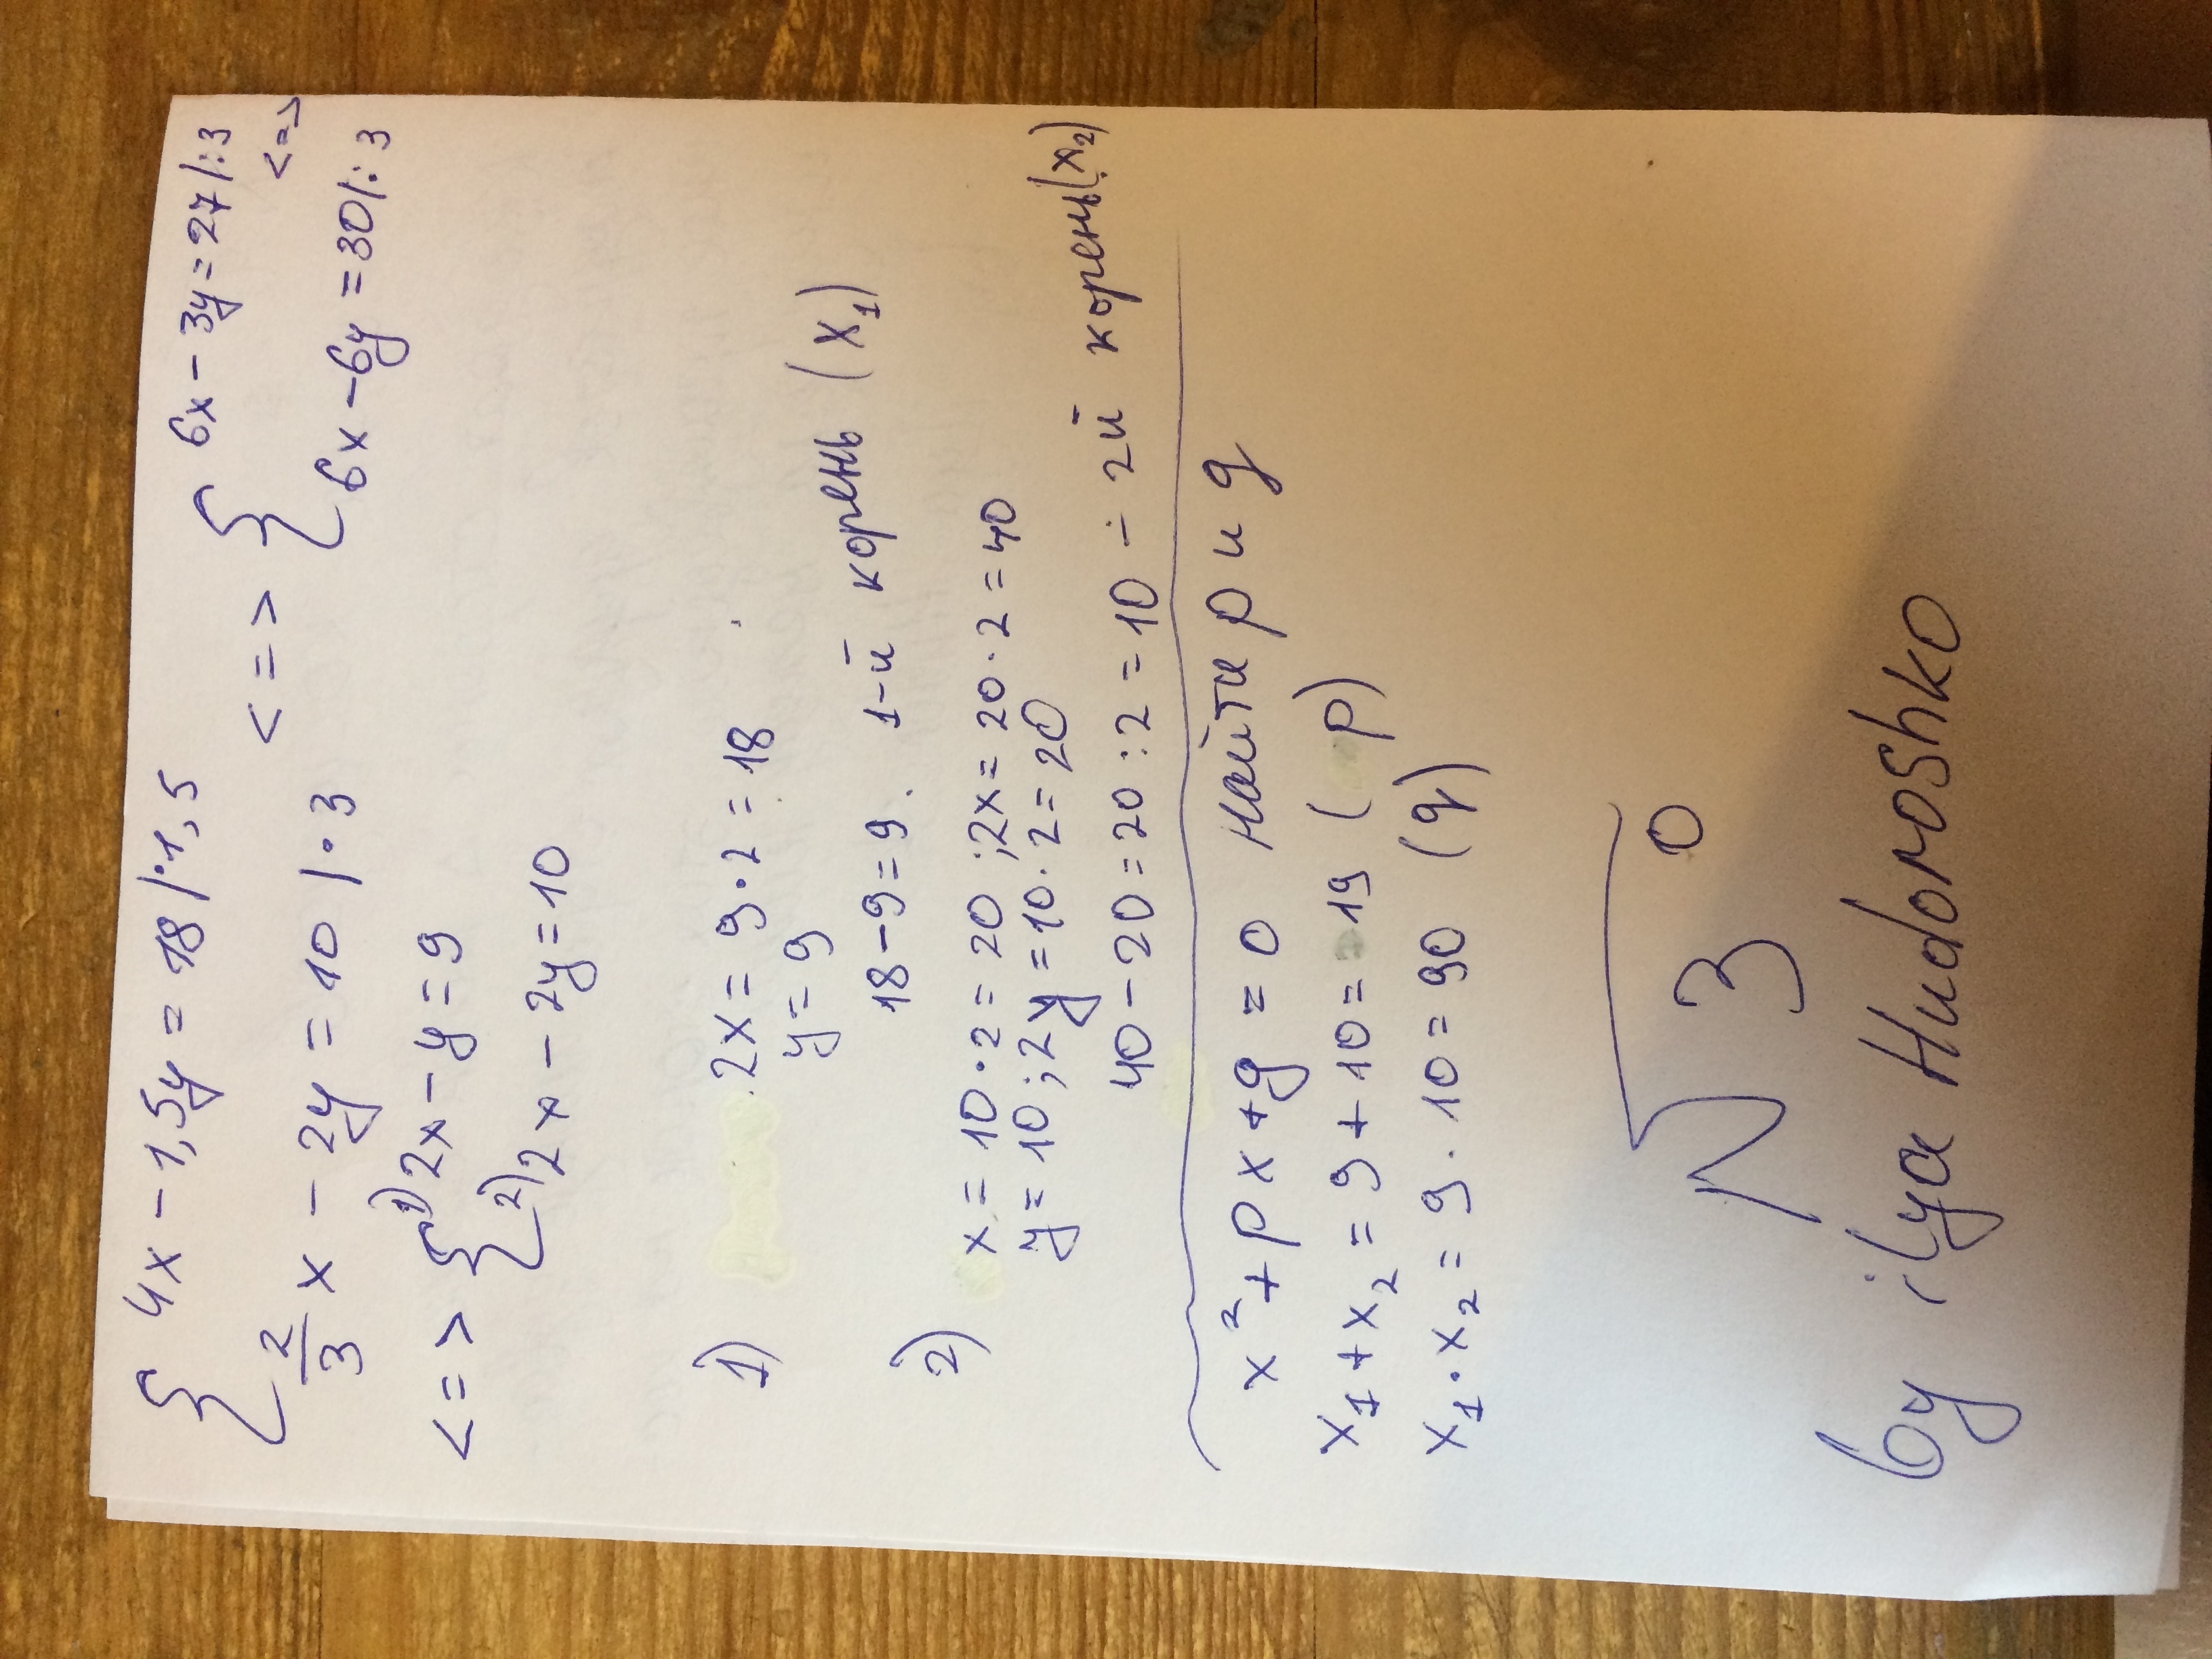 { 4x - 1,5y = 18 |·1,5 <=> { 6x - 3y = 27 |:3
2/3 x - 2y = 10 | · 3 6x - 6y = 30 |: 3 <=>
<=> { 1) 2x - y = 9
2) 2x - 2y = 10
1) 2x = 9 · 2 = 18
y = 9
18 - 9 = 9. 1-й корень (x₁)
2) x = 10 · 2 = 20 ; 2x = 20 · 2 = 40
y = 10 ; 2y = 10 · 2 = 20
40 - 20 = 20 : 2 = 10 - 2й корень (x₂)
x² + px + g = 0 найти p и g
x₁ + x₂ = 9 + 10 = 19 (p)
x₁ · x₂ = 9 · 10 = 90 (q)
√30
by ilya Hudoroshko